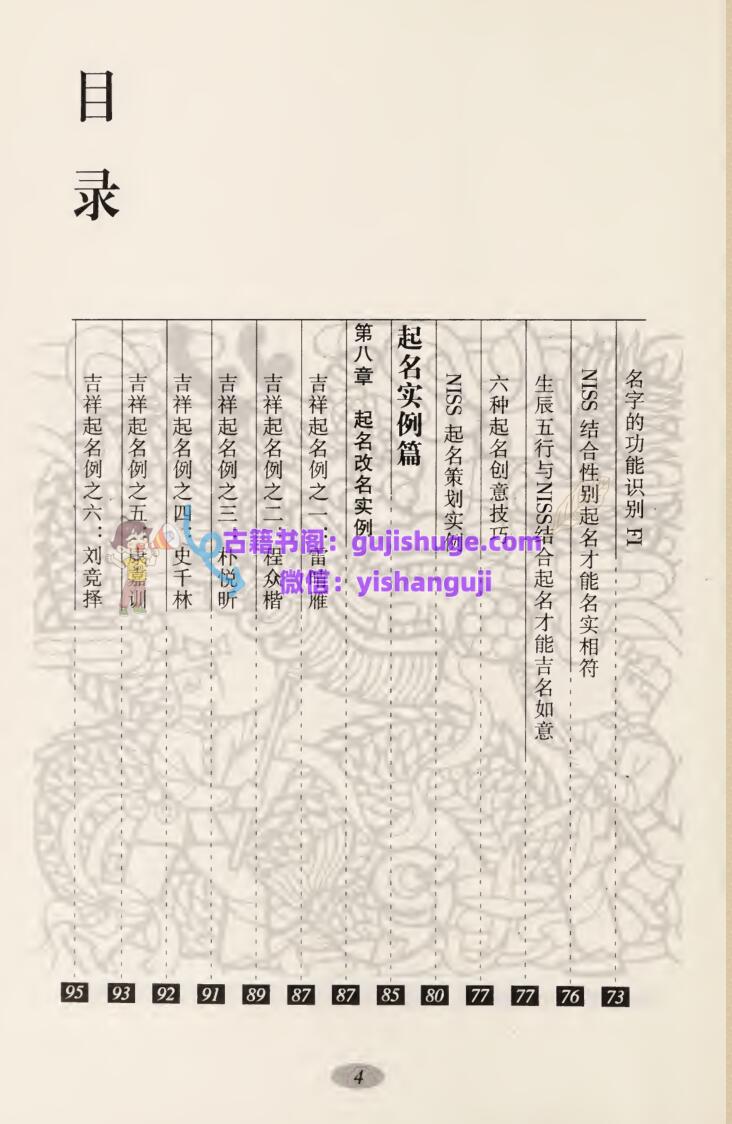 目录
名字的功能识别 FI 73
NISS 结合性别起名才能名实相符 76
生辰五行与NISS结合起名才能吉名如意 77
六种起名创意技巧 77
NISS 起名策划实例 80
起名实例篇 85
第八章 起名改名实例 87
吉祥起名例之一：雷雁 87
吉祥起名例之二：程众楷 89
吉祥起名例之三：朴悦昕 91
吉祥起名例之四：史千林 92
吉祥起名例之五：康嘉训 93
吉祥起名例之六：刘竞择 95
古籍书阁：gujishuge.com
微信：yishanguji
4